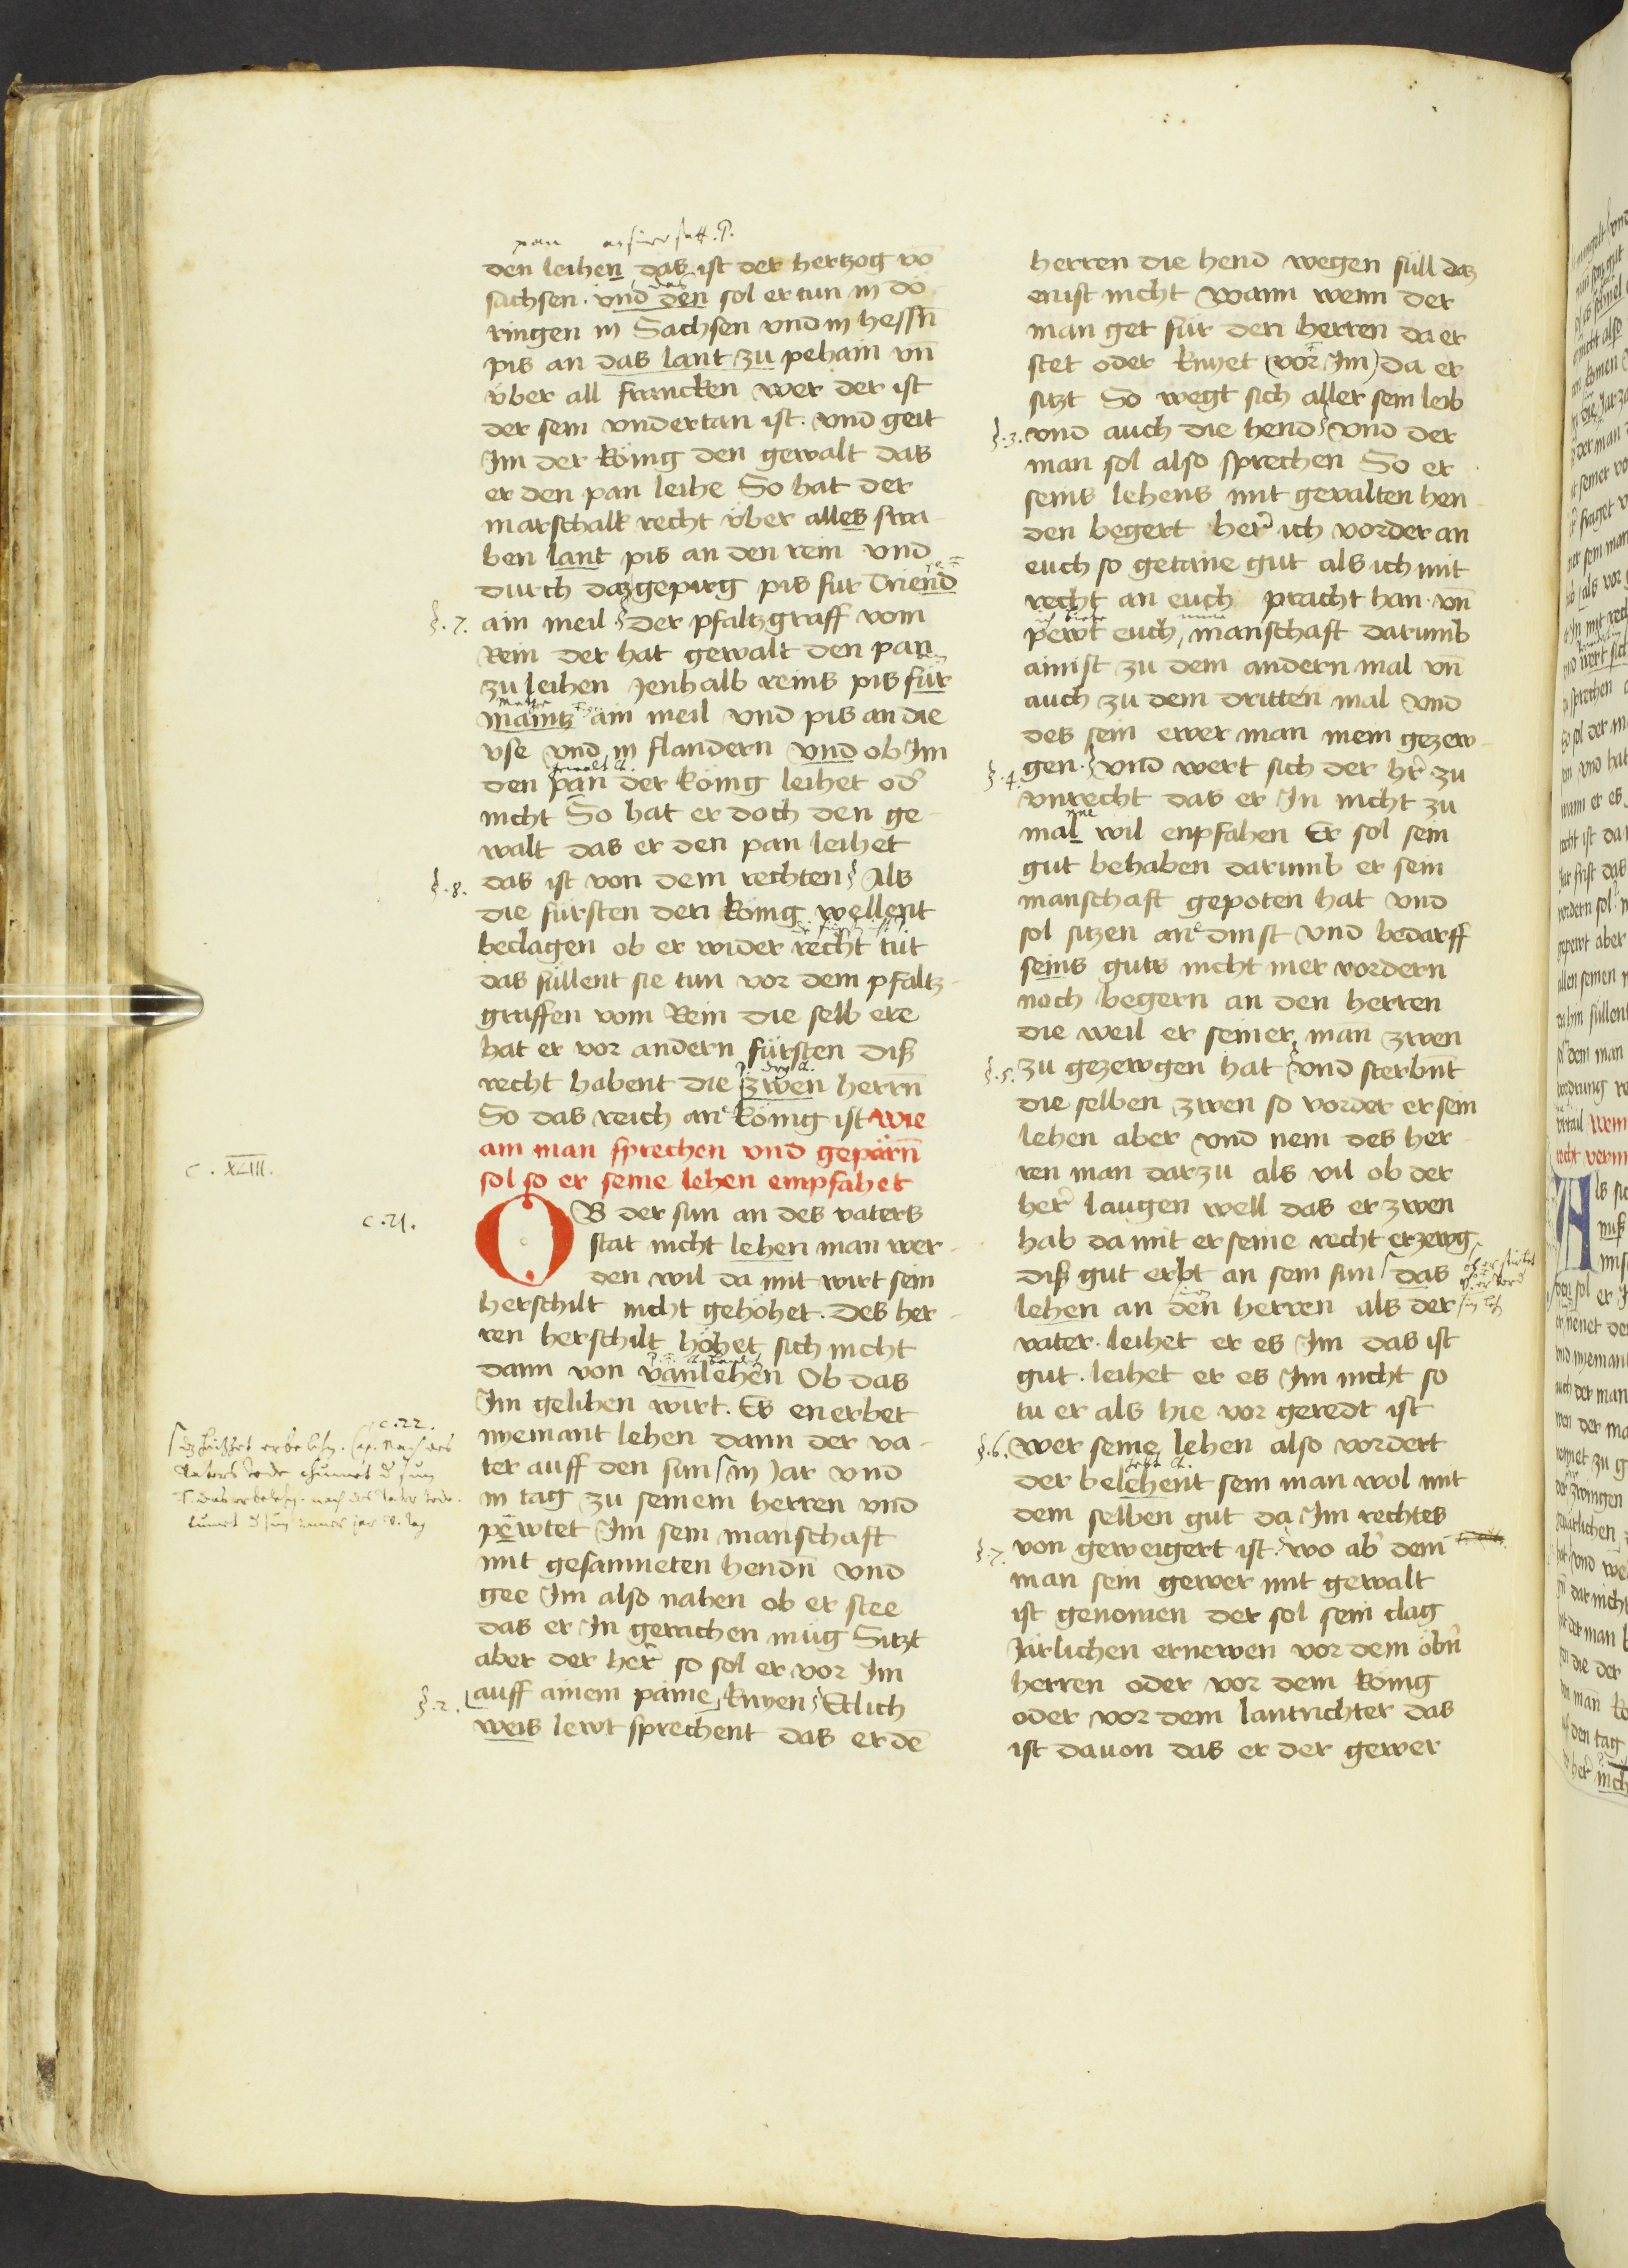 den leihen das ist der hertzog vō
sachsen. vnd den sol er tun in dö
ringen in Sachsen vnd in hessn̄
pis an das lant zu pehaim vn̄
vber all francken wer der ist
der sein vndertan ist. vnd geit
Im der König den gewalt das
er den pan leihe So hat der
marschalk recht vber alles swa
ben lant pis an den rein vnd
durch daz gepirg pis fur Triend
§.7. ain meil der pfaltzgraff vom
Rein der hat gewalt den pan
zu leihen Jenhalb reins pis fur
maintz ain meil vnd pis an die
vse vnd in flandern vnd ob Im
den pan der König leihet od̾
nicht So hat er doch den ge
walt das er den pan leihet
§.8. das ist von dem rechten Als
die fursten den König wellent
beclagen ob er wider recht tut
das sullent sie tun vor dem pfaltz
graffen vom Rein die selb ere
hat er vor andern fürsten diß
recht habent die zwen herrn̄
So das reich an König ist Wie
c. XLIII. ain man sprechen vnd geparn̄
sol so er seine lehen empfahet
c.21. OB der sun an des vaters
stat nicht lehen man wer
den wil da mit wirt sein
herschilt nicht gehöhet. Des her
ren herschilt höhet sich nicht
dann von vanlehen Ob das
Im gelihen wirt. Es enerbet
c.22.
nyemant lehen dann der va
ter auff den sun in Jar vnd
in tag zu seinem herren vnd
pewtet Im sein manschaft
mit gesammeten hendn̄ vnd
gee Im also nahen ob er stee
das er In geraichen müg Sitzt
aber der her so sol er vor Im
§.2. auff ainem paine knyen Etlich
weis lewt sprechent das er dē
herren die hend wegen süll daz
enist nicht Wann wenn der
man get für den herren da er
stet oder knyet vor Im da er
sitzt So wegt sich aller sein leib
§.3. vnd auch die hend vnd der
man sol also sprechen So er
seins lehens mit gevalten hen
den begert her̄ ich vorder an
euch so getane gut als ich mit
recht an euch pracht han. vn̄
pewt euch manschaft darumb
ainist zu dem andern mal vn̄
auch zu dem dritten mal vnd
des sein ewer man mein gezew
§.4. gen. vnd wert sich der hr̄ zu
vnrecht das er In nicht zu
mal wil enpfahen Er sol sein
gut behaben darumb er sein
manschaft gepoten hat vnd
sol sitzen an dinst vnd bedarff
seins guts nicht mer vordern
noch begern an den herren
die weil er seiner man zwen
§.5. zu gezewgen hat vnd sterbnt
die selben zwen so vorder er sein
lehen aber vnd nem des her
ren man darzu als vil ob der
her̄ laugen well das er zwen
hab da mit er seine recht erzewg
diß gut erbt an sein sun das
lehen an den herren als der
vater. leihet er es Im das ist
gut. leihet er es Im nicht so
tu er als hie vor geredt ist
§.6. wer seine lehen also vordert
der belehent sein man wol mit
dem selben gut da Im rechtes
§.7. von geweigert ist. wo ab̾ dem
man sein gewer mit gewalt
ist genomen der sol sein clag
Järlichen ernewen vor dem öbn̄
herren oder vor dem König
oder vor dem lantrichter das
ist dauon das er der gewer